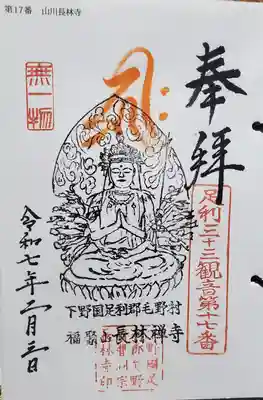 第17番 山川長林寺
奉拝
無一物
足利三十三観音第十七番
令和七年二月三日
下野国足利郡毛野村
福聚山長林禅寺